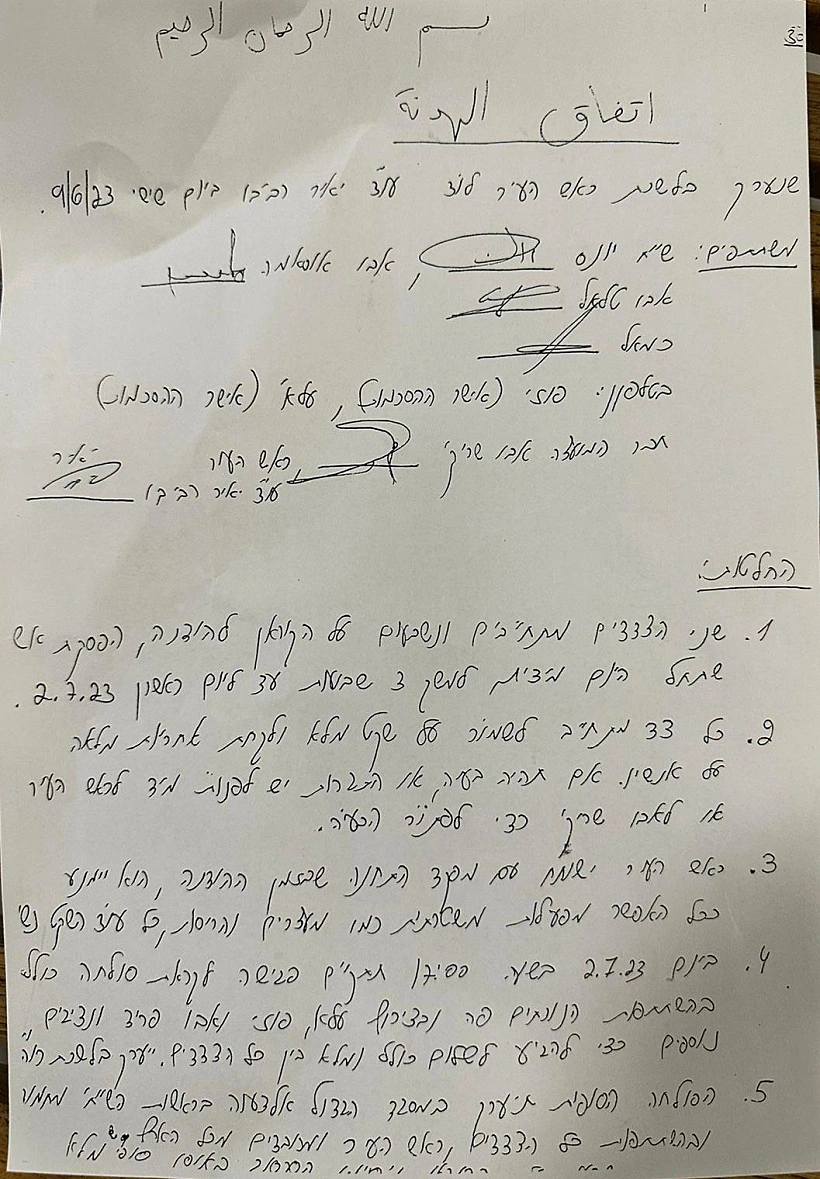 30
بسم الله الرحمان الرحيم
اتفاق الهدنة
שנערך בלשכת ראש העיר לוד עו"ד יאיר רביבו ביום שישי 9/6/23.
משתתפים: שיח' יונס, אבו אוסאמה
אבו טלאל
כמאל
בטלפון: פוזי (אישר ההסכמות), עלא' (אישר ההסכמות)
חבר המועצה אבו שריקי, ראש העיר יאיר
עו"ד יאיר רביבו
החלטות:
1. שני הצדדים מתחייבים ונשבעים על הקוראן להודנה, הפסקת אש
שתחל היום מיידית למשך 3 שבועות עד ליום ראשון 2.7.23.
2. כל צד מתחייב לשמור על שקט מלא ולקחת אחריות מלאה
על אנשיו. אם תהיה בעיה או התגרות יש לפנות מיד לראש העיר
או לאבו שריקי כדי לפתור הבעיה.
3. ראש העיר ישוחח עם מפקד התחנה שבזמן ההודנה, הוא יימנע
ככל האפשר מפעולות משטרתיות כמו מעצרים והריסות, כל עוד השקט
4. ביום 2.7.23 בשעה 17:00 תתקיים פגישה לקראת סולחה כוללת
בהשתתפות הנוכחים פה ובצירוף עלא, פוזי ואבו פריד ונציגים
נוספים כדי להגיע לשלום כולל ומלא בין כל הצדדים. ייערך בלשכת
5. הסולחה הסופית תיערך במסגד הגדול בראשות השיח'
ובהשתתפות כל הצדדים, ראש העיר ומכובדים מכל הארץ מלא
באופן